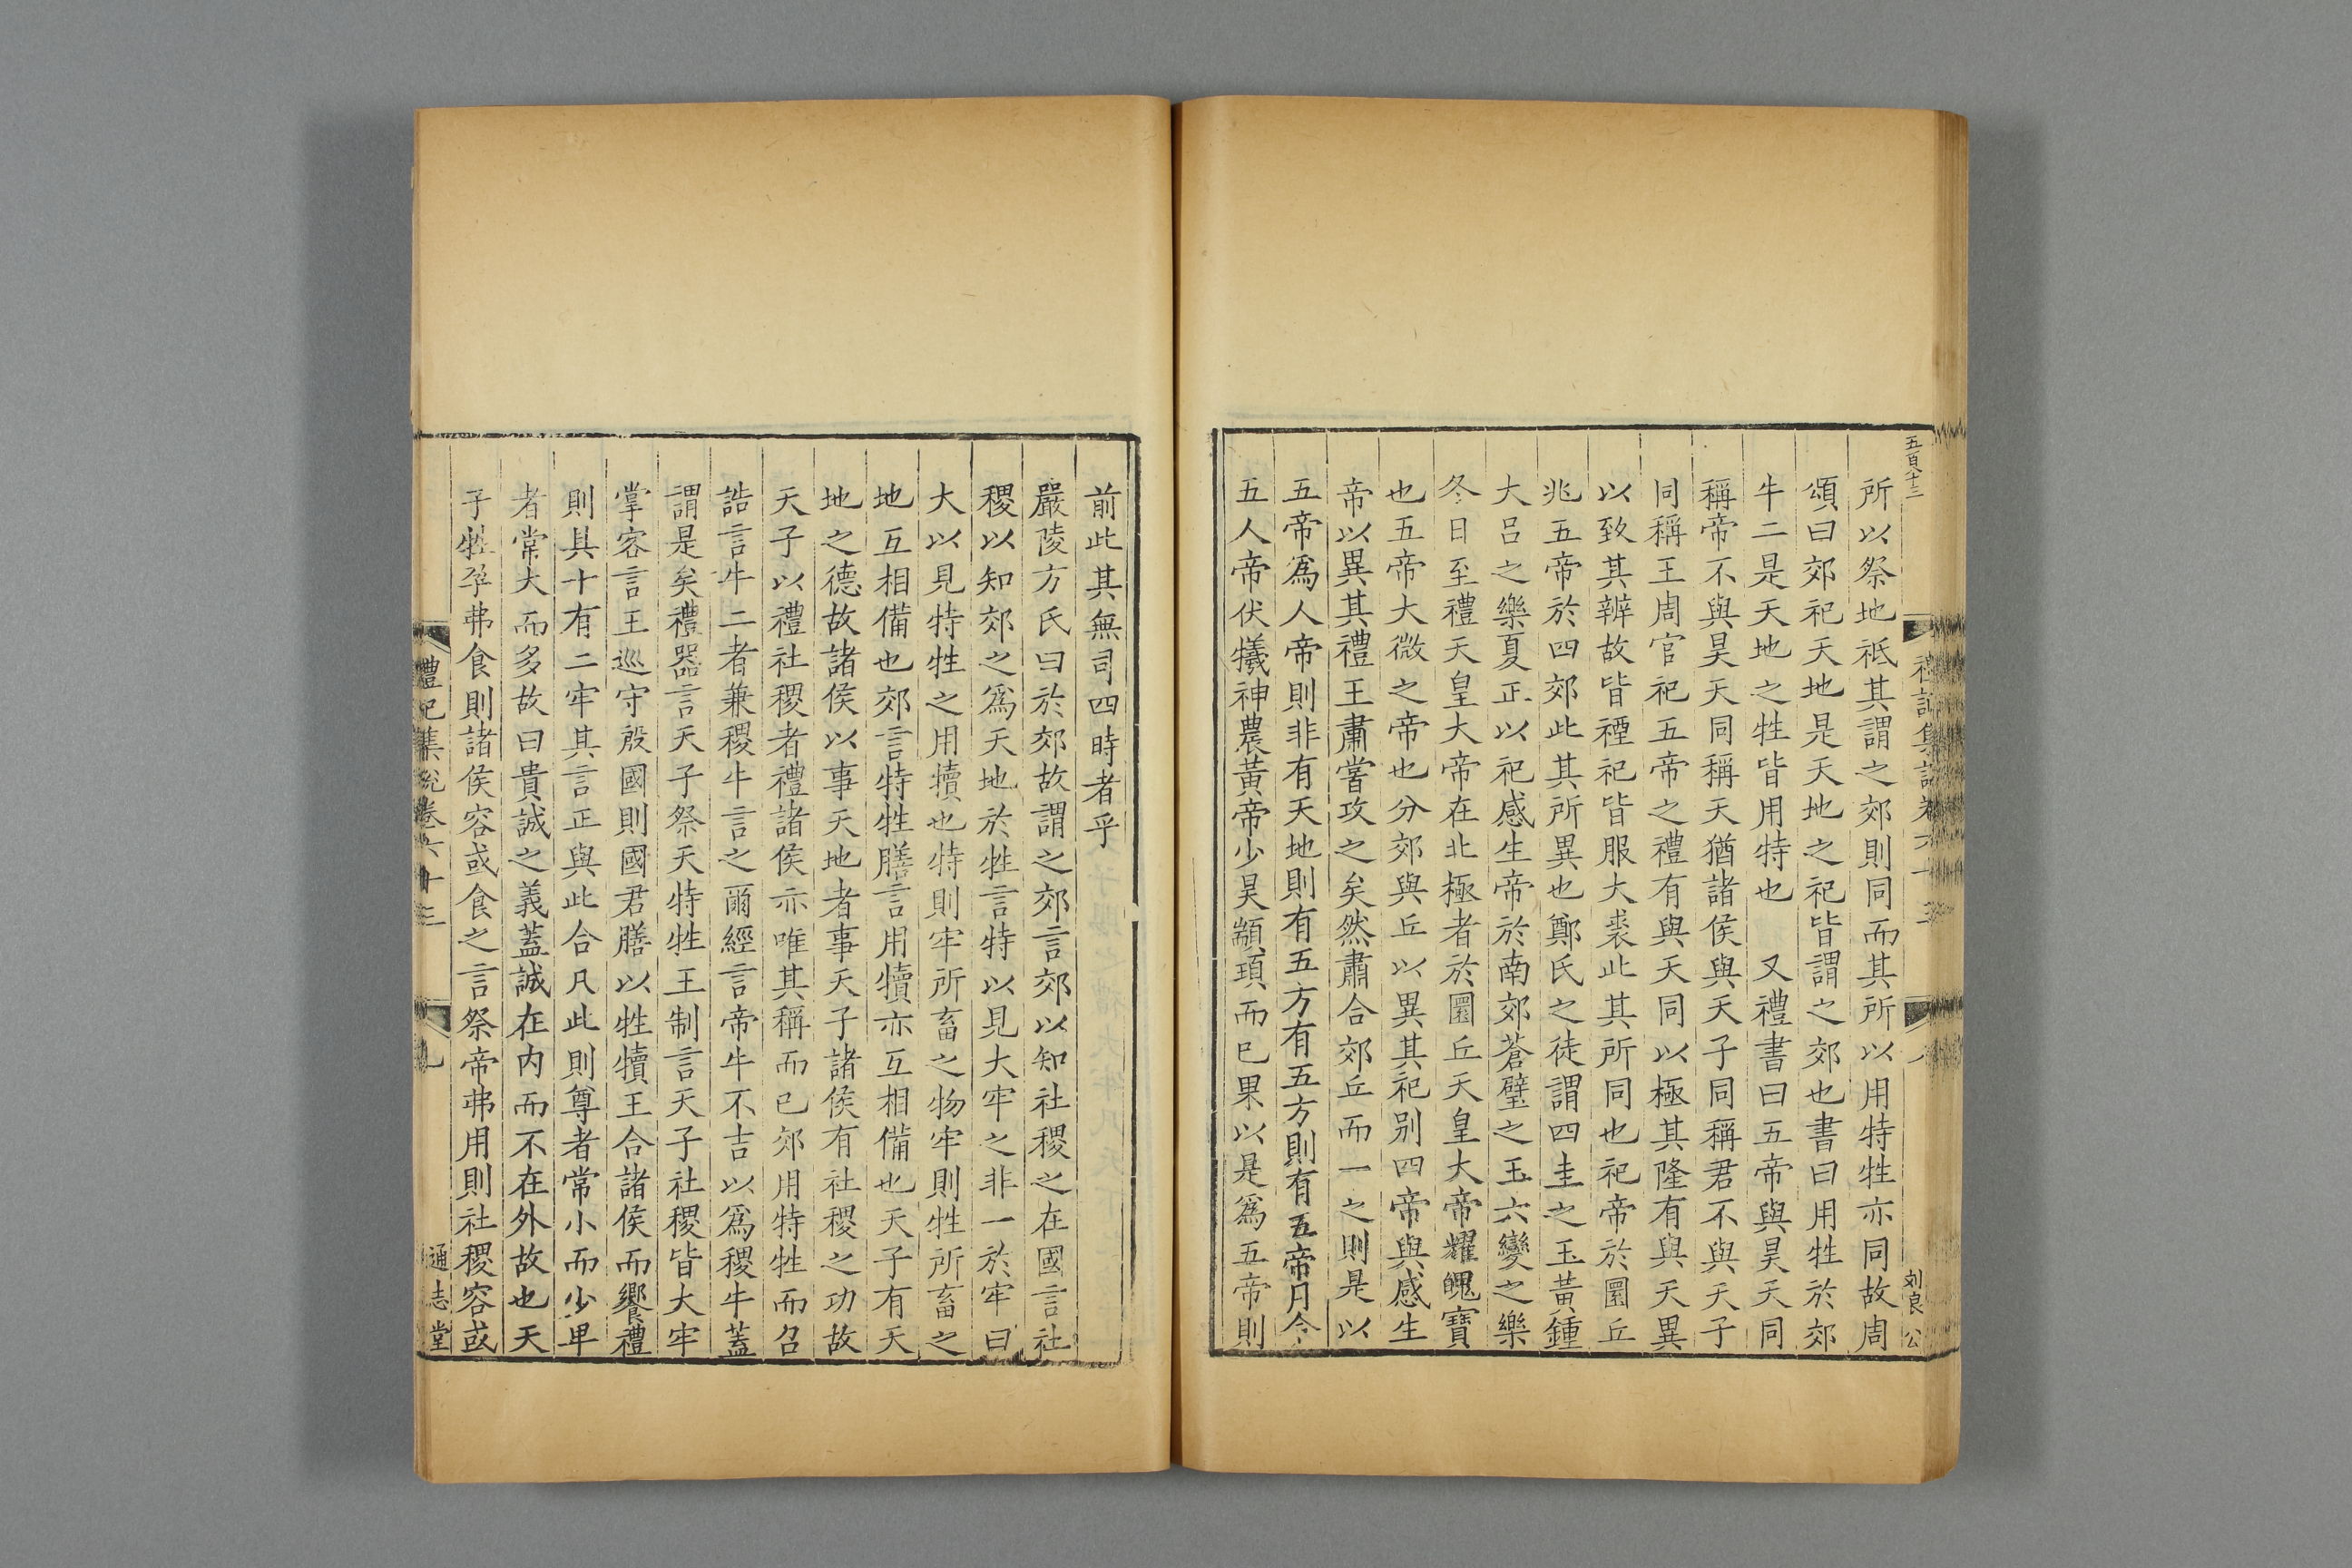 五百八十三
禮記集說卷六十三
八
刘良 公
所以祭地祇其謂之郊則同而其所以用特牲亦同故周
頌曰郊祀天地是天地之祀皆謂之郊也書曰用牲於郊
牛二是天地之牲皆用特也 又禮書曰五帝與昊天同
稱帝不與昊天同稱天猶諸侯與天子同稱君不與天子
同稱王周官祀五帝之禮有與天同以極其隆有與天異
以致其辨故皆禋祀皆服大裘此其所同也祀帝於圜丘
兆五帝於四郊此其所異也鄭氏之徒謂四圭之玉黃鍾
大呂之樂夏正以祀感生帝於南郊蒼璧之玉六變之樂
冬日至禮天皇大帝在北極者於圜丘天皇大帝耀魄寶
也五帝大微之帝也分郊與丘以異其祀别四帝與感生
帝以異其禮王肅嘗攻之矣然肅合郊丘而一之則是以
五帝爲人帝則非有天地則有五方有五方則有五帝月令
五人帝伏犧神農黃帝少昊顓頊而已果以是爲五帝則
前此其無司四時者乎
嚴陵方氏曰於郊故謂之郊言郊以知社稷之在國言社
稷以知郊之爲天地於牲言特以見大牢之非一於牢曰
大以見特牲之用犢也特則牢所畜之物牢則牲所畜之
地互相備也郊言特牲膳言用犢亦互相備也天子有天
地之德故諸侯以事天地者事天子諸侯有社稷之功故
天子以禮社稷者禮諸侯亦唯其稱而已郊用特牲而召
誥言牛二者兼稷牛言之爾經言帝牛不吉以爲稷牛蓋
謂是矣禮器言天子祭天特牲王制言天子社稷皆大牢
掌客言王巡守殷國則國君膳以牲犢王合諸侯而饗禮
則具十有二牢其言正與此合凡此則尊者常小而少卑
者常大而多故曰貴誠之義蓋誠在内而不在外故也天
子牲孕弗食則諸侯容或食之言祭帝弗用則社稷容或
禮記集說卷六十三
九
通志堂